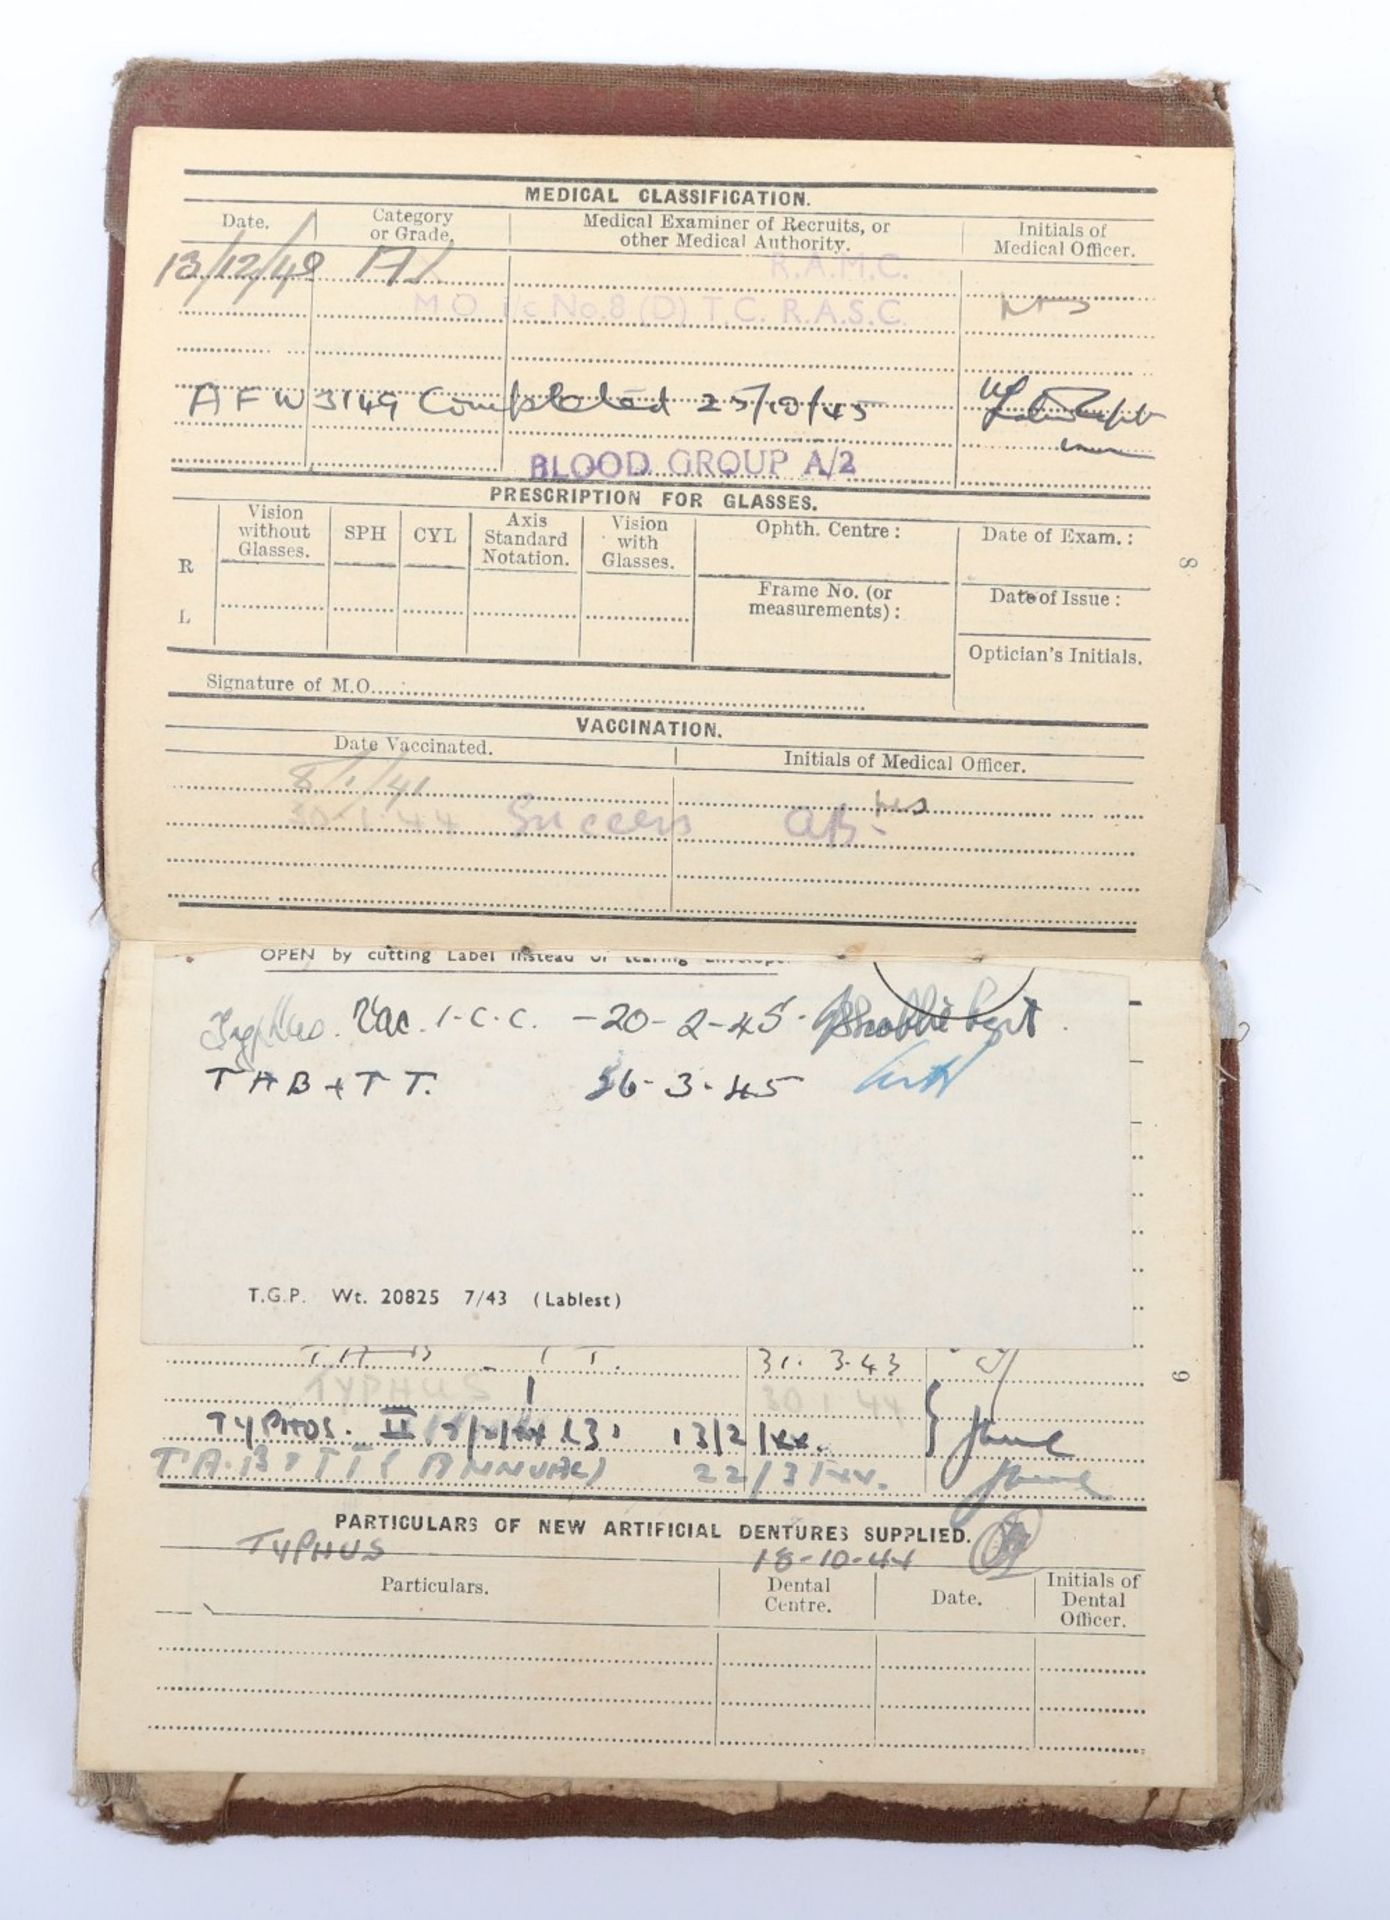 MEDICAL CLASSIFICATION.
Date. Category or Grade. Medical Examiner of Recruits, or other Medical Authority. Initials of Medical Officer.
13/12/40 A1 R.A.M.C.
M.O. i/c No.8 (D) T.C. R.A.S.C.
A F W 3149 Completed 25/10/45
BLOOD GROUP A/2
PRESCRIPTION FOR GLASSES.
Vision without Glasses. SPH CYL Axis Standard Notation. Vision with Glasses. Ophth. Centre: Date of Exam.:
R
Frame No. (or measurements): Date of Issue:
L
Optician's Initials.
Signature of M.O.
8
VACCINATION.
Date Vaccinated. Initials of Medical Officer.
8/1/41
30-1-44 Success AB-
OPEN by cutting Label instead of tearing Envelope.
Typhus. Vac. 1.C.C. -20-2-45-
T A B + T T. 26-3-45
T.G.P. Wt. 20825 7/43 (Lablest)
T A B T T. 31. 3.43
TYPHUS 1 30 1 44
TYPHUS. II (3) 13/2/44.
T.A.B + TT (ANNUAL) 22/3/44.
9
PARTICULARS OF NEW ARTIFICIAL DENTURES SUPPLIED.
TYPHUS 18-10-44
Particulars. Dental Centre. Date. Initials of Dental Officer.